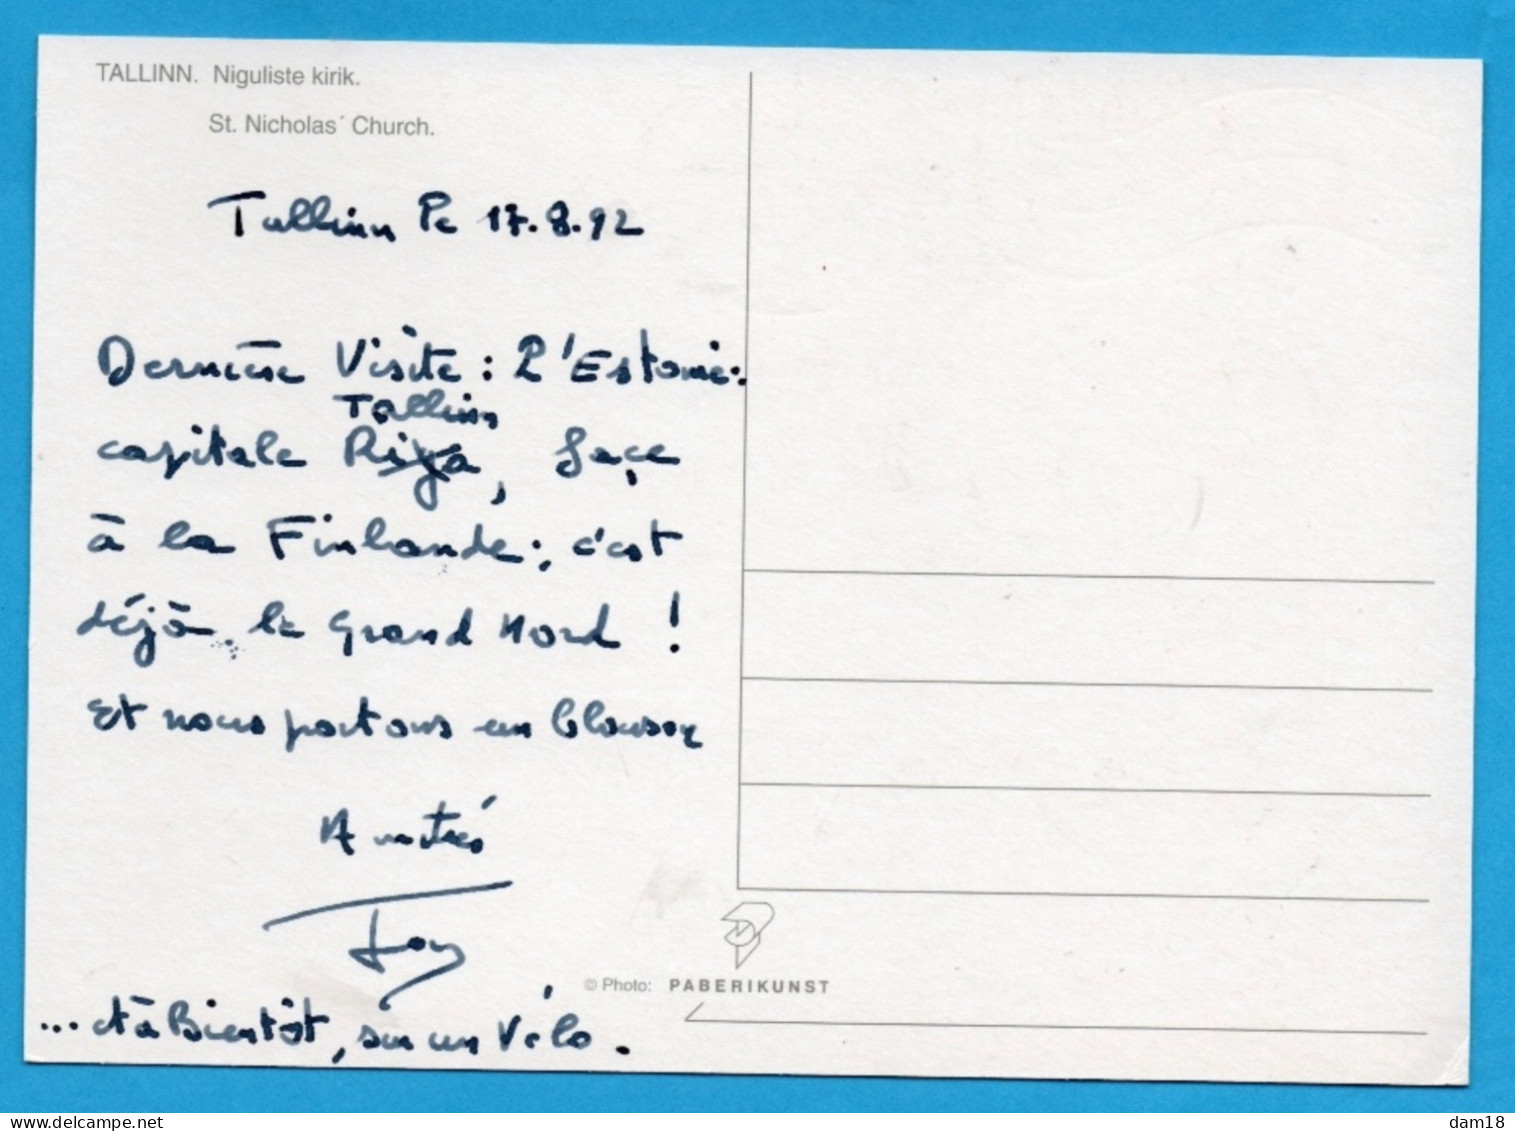 TALLINN. Niguliste kirik.
St. Nicholas´ Church.
Tallinn le 17.8.92
Dernière Visite : l'Estonie:
Tallinn
capitale Riga, face
à la Finlande:, c'est
déjà le Grand Nord !
Et nous portons un blouson
Amitiés
... et à Bientôt, sur un Vélo.
© Photo: PABERIKUNST
delcampe.net
dam18